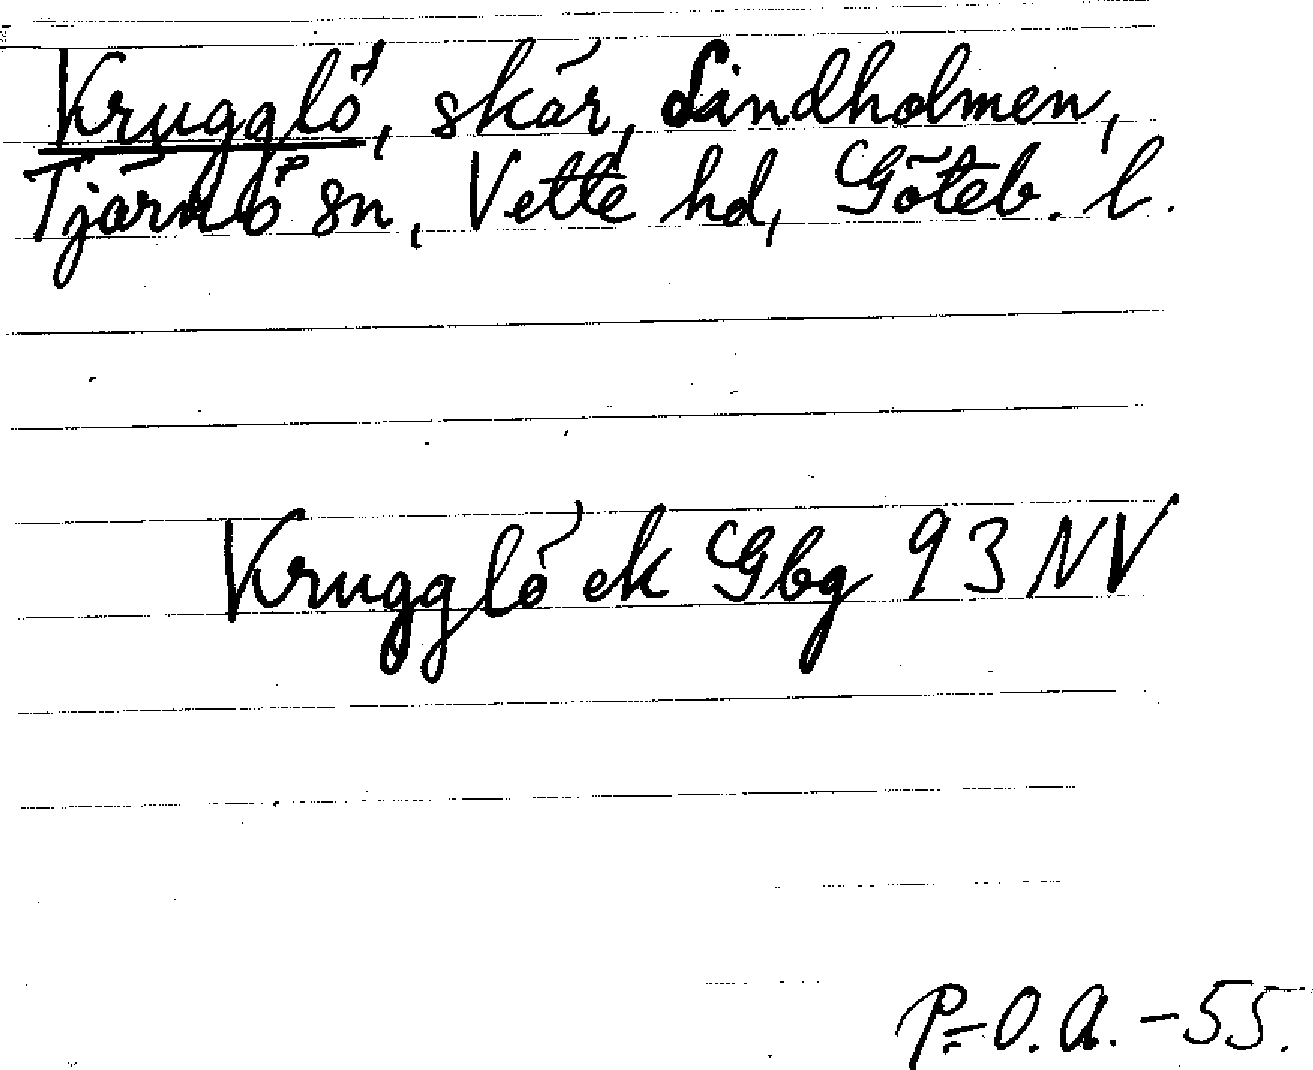 Krugglö, skär, Lindholmen,
Tjärnö sn, Vette hd, Göteb. l.
Krugglö ek Gbg 93 NV
P-O. A. -55.